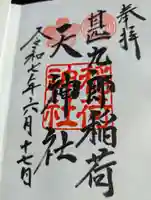 奉拝
甚九郎稲荷
天神社
令和七年六月十七日